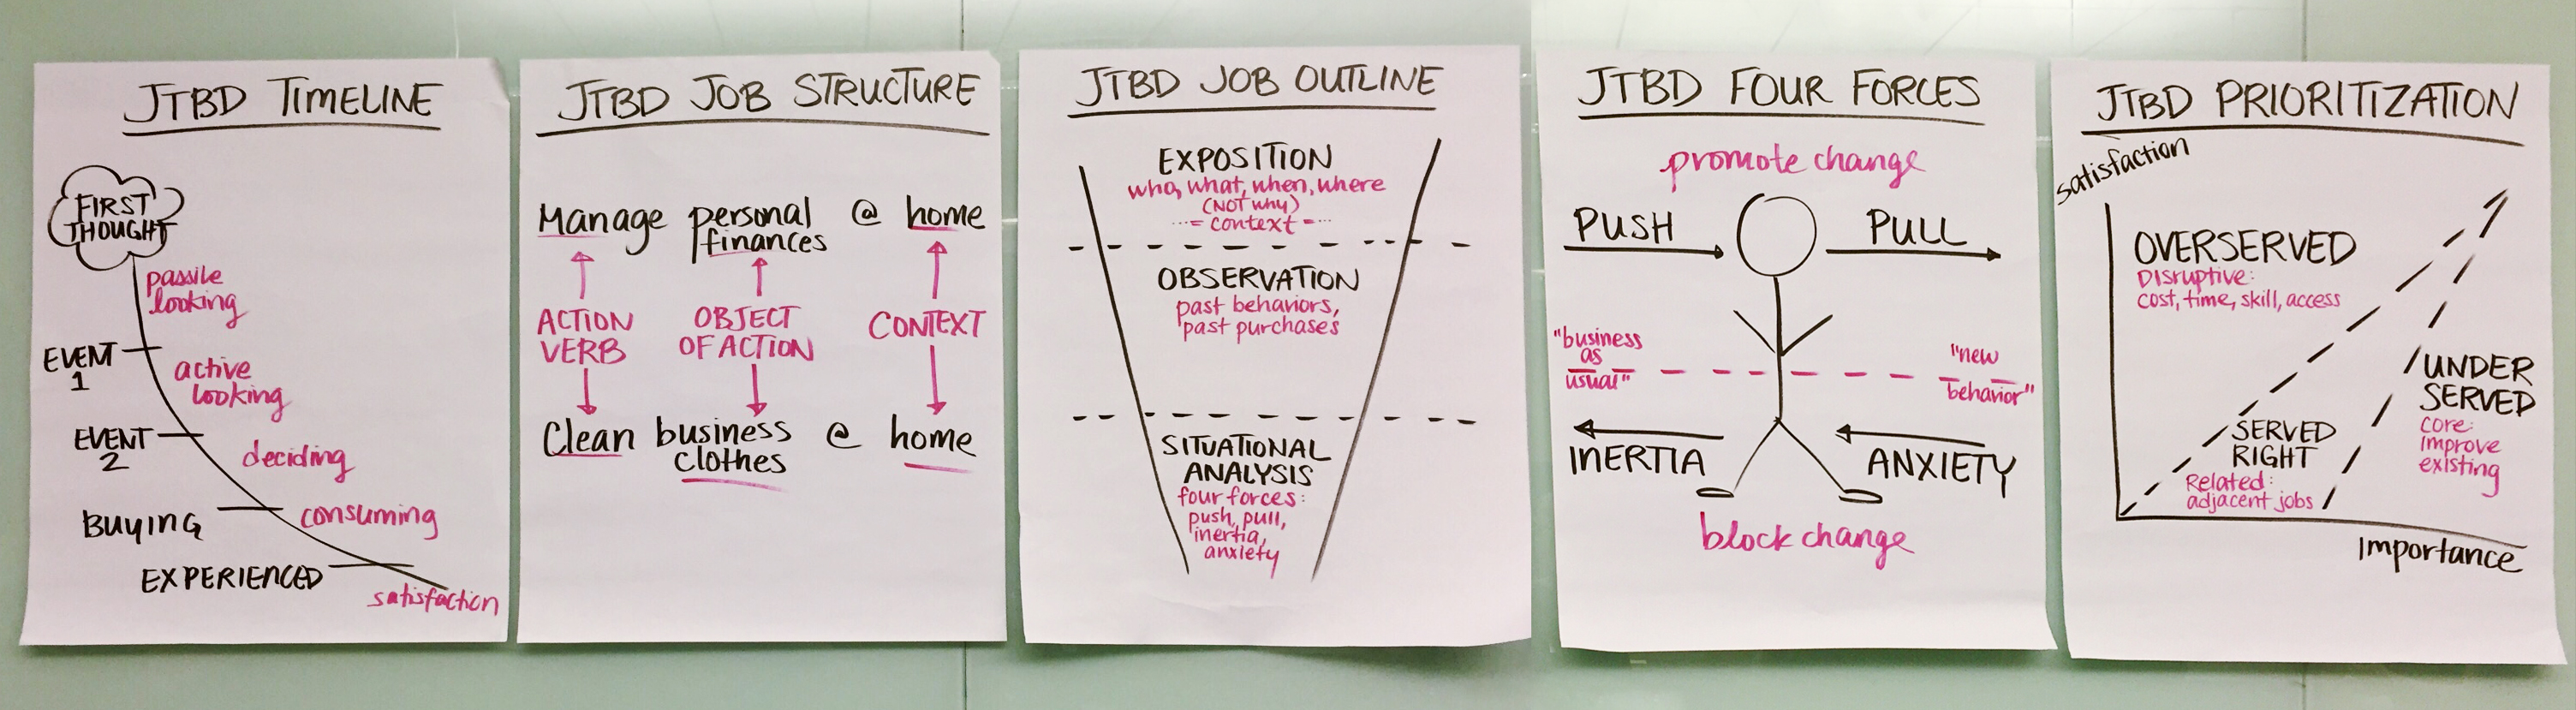 JTBD TIMELINE
FIRST
THOUGHT
passive
looking
EVENT
1
active
looking
EVENT
2
deciding
BUYING
consuming
EXPERIENCED
satisfaction
JTBD JOB STRUCTURE
Manage personal finances @ home
ACTION
VERB
OBJECT
OF ACTION
CONTEXT
Clean business clothes @ home
JTBD JOB OUTLINE
EXPOSITION
who, what, when, where
(NOT why)
= context =
OBSERVATION
past behaviors,
past purchases
SITUATIONAL
ANALYSIS
four forces:
push, pull,
inertia,
anxiety
JTBD FOUR FORCES
promote change
PUSH
PULL
"business
as
usual"
"new
behavior"
INERTIA
ANXIETY
block change
JTBD PRIORITIZATION
satisfaction
OVERSERVED
Disruptive:
cost, time, skill, access
UNDER
SERVED
core:
improve
existing
SERVED
RIGHT
Related:
adjacent jobs
Importance